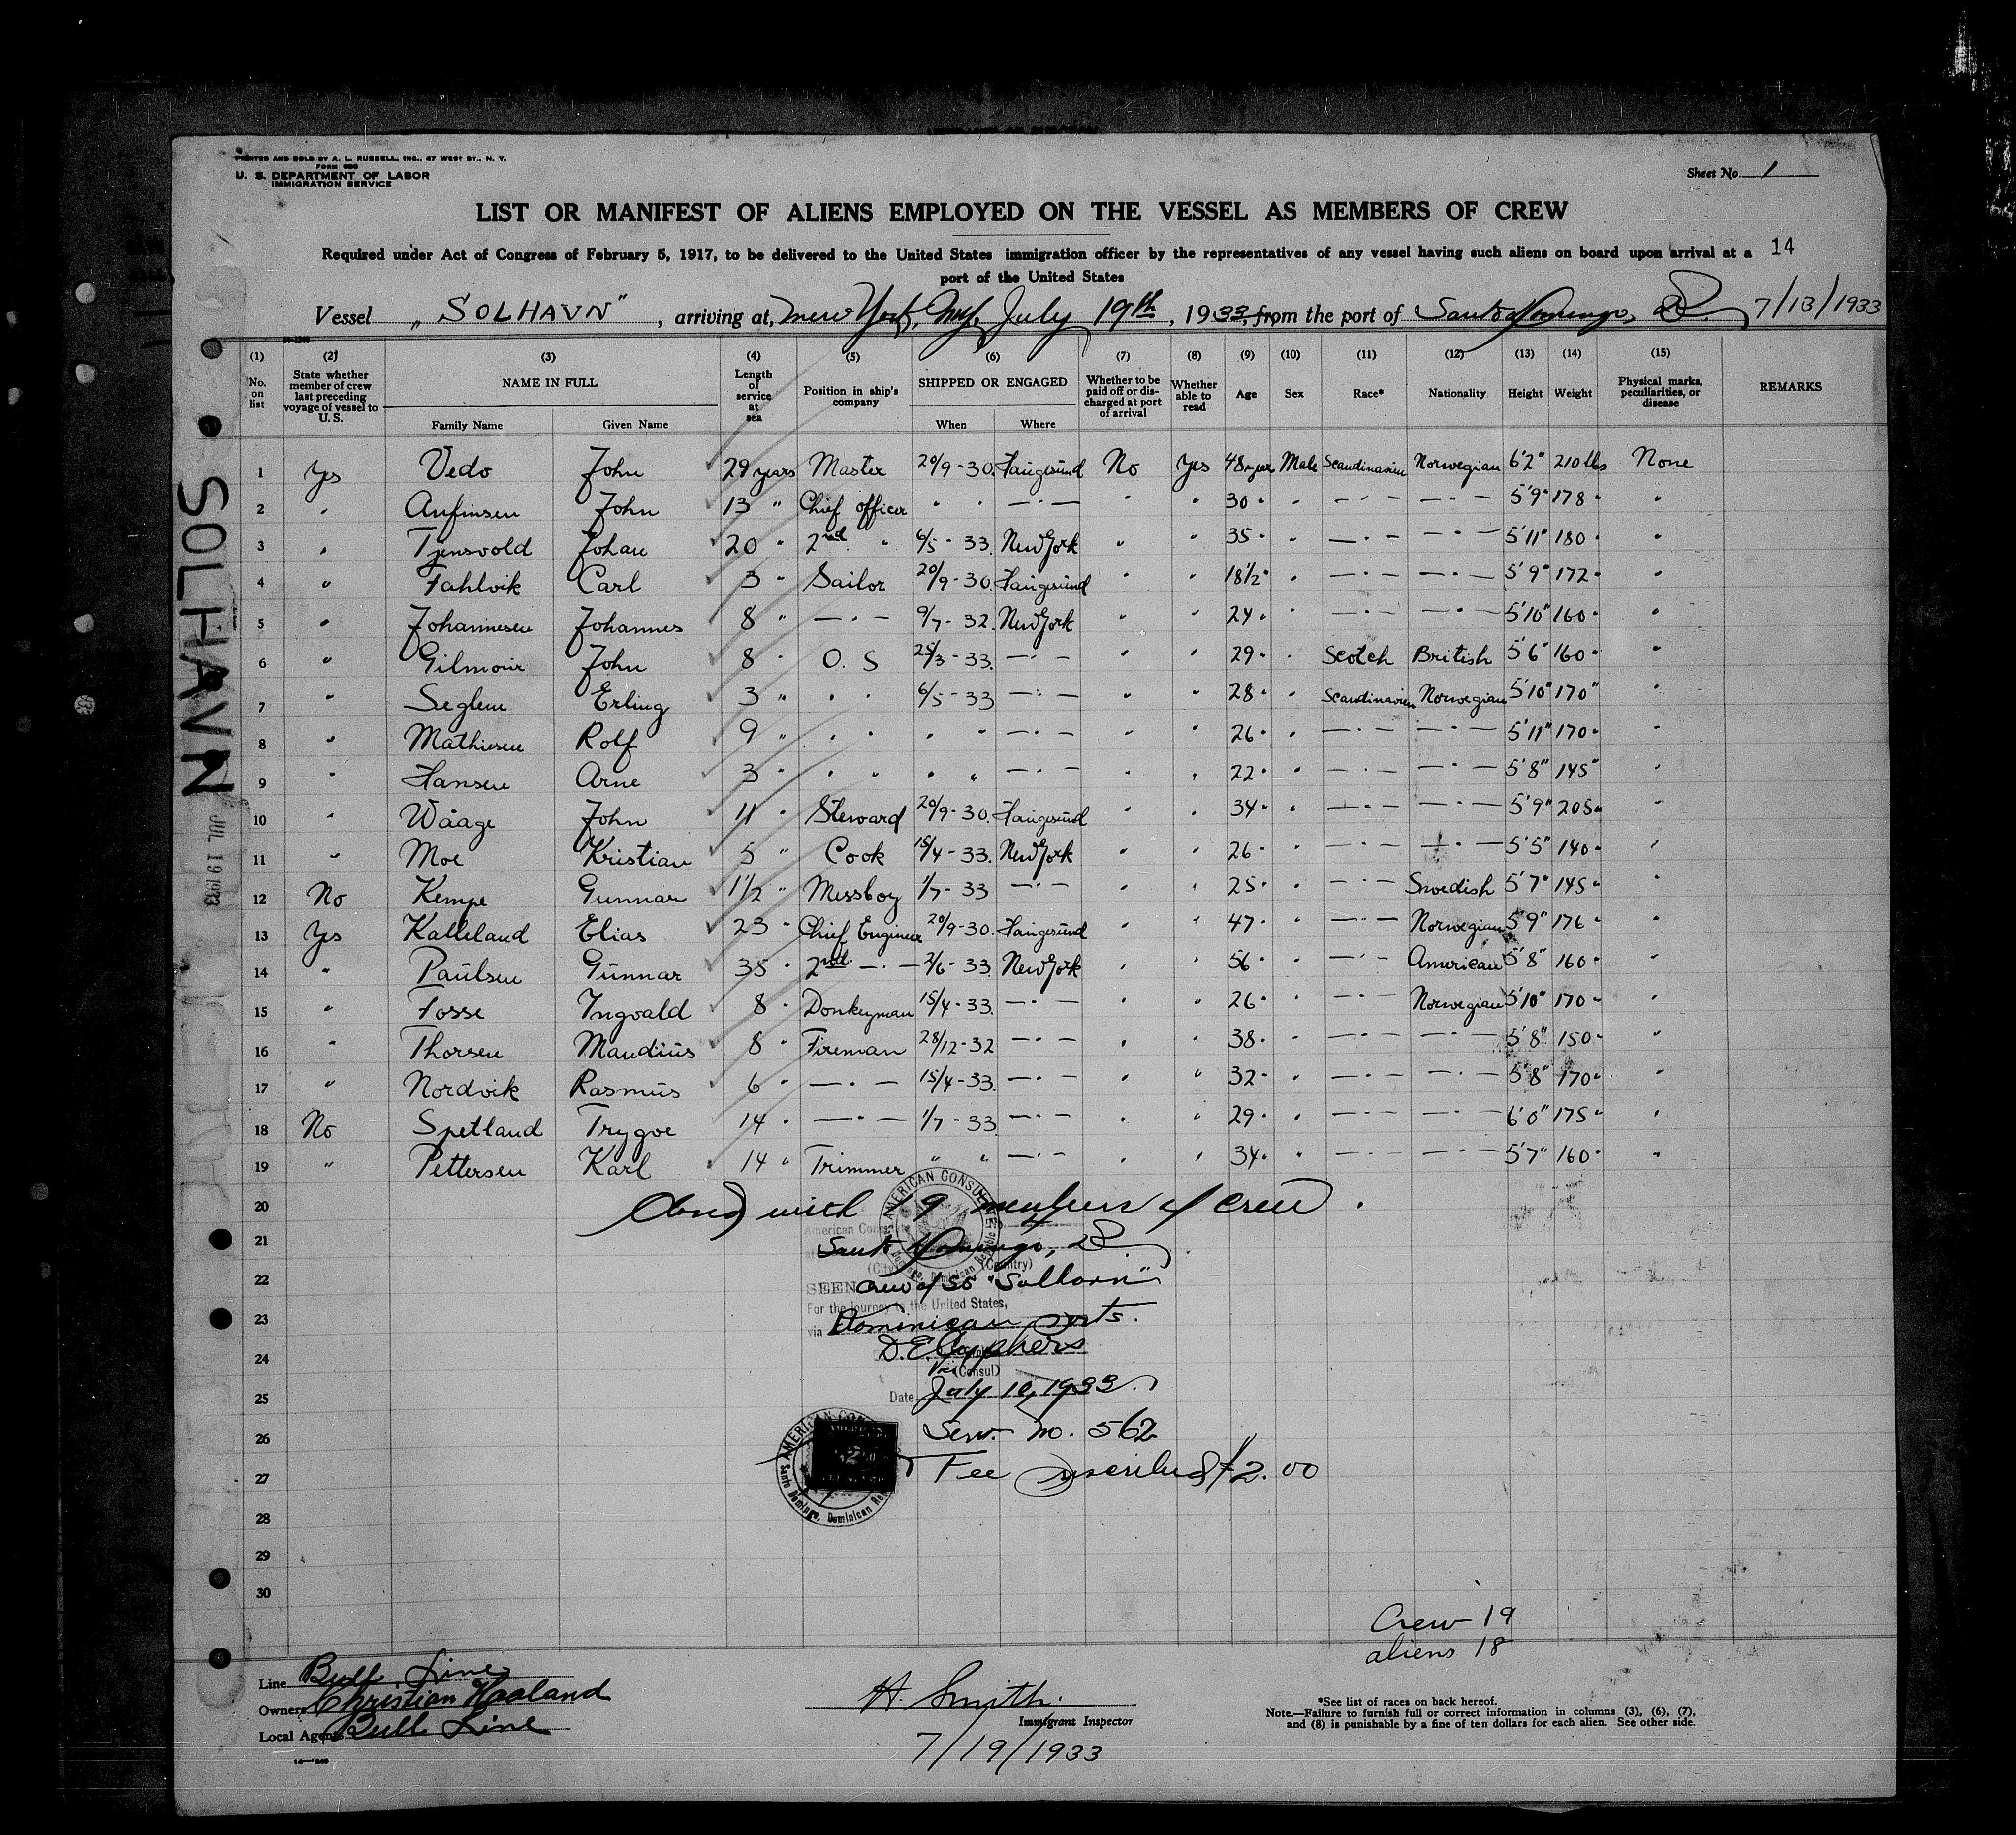 PRINTED AND SOLD BY A. L. RUSSELL, INC., 47 WEST ST., N. Y.
FORM 680
U. S. DEPARTMENT OF LABOR
IMMIGRATION SERVICE
Sheet No. 1
LIST OR MANIFEST OF ALIENS EMPLOYED ON THE VESSEL AS MEMBERS OF CREW
Required under Act of Congress of February 5, 1917, to be delivered to the United States immigration officer by the representatives of any vessel having such aliens on board upon arrival at a 14
port of the United States
Vessel „SOLHAVN", arriving at, New York, N.Y. July 19th, 1933, from the port of Santo Domingo, 7/13/1933
(1) (2) (3) (4) (5) (6) (7) (8) (9) (10) (11) (12) (13) (14) (15)
No. on list State whether member of crew last preceding voyage of vessel to U. S. NAME IN FULL Length of service at sea Position in ship's company SHIPPED OR ENGAGED Whether to be paid off or discharged at port of arrival Whether able to read Age Sex Race* Nationality Height Weight Physical marks, peculiarities, or disease REMARKS
Family Name Given Name When Where
1 Yes Vedo John 29 years Master 20/9-30. Haugesund No Yes 48 year Male Scandinavien Norwegian 6'2" 210 lbs None
2 " Anfinsen John 13 " Chief officer " " —"— " " 30 " " —"— —"— 5'9" 178 " "
3 " Tjensvold Johan 20 " 2nd " 6/5-33. New York " " 35 " " —"— —"— 5'11" 180 " "
4 " Fahlvik Carl 3 " Sailor 20/9-30. Haugesund " " 18½ " " —"— —"— 5'9" 172 " "
5 " Johannesen Johannes 8 " —"— 9/7-32. New York " " 24 " " —"— —"— 5'10" 160 " "
6 " Gilmour John 8 " O. S 25/3-33. —"— " " 29 " " Scotch British 5'6" 160 " "
7 " Seglem Erling 3 " " " 6/5-33 —"— " " 28 " " Scandinavien Norwegian 5'10" 170 " "
8 " Mathiesen Rolf 9 " " " " " —"— " " 26 " " —"— —"— 5'11" 170 " "
9 " Hansen Arne 3 " " " " " —"— " " 22 " " —"— —"— 5'8" 145 " "
10 " Wåage John 11 " Steward 20/9-30. Haugesund " " 34 " " —"— —"— 5'9" 205 " "
11 " Moe Kristian 5 " Cook 15/4-33. New York " " 26 " " —"— —"— 5'5" 140 " "
12 No Kempe Gunnar 1½ " Messboy 1/7-33 —"— " " 25 " " —"— Swedish 5'7" 145 " "
13 Yes Kalleland Elias 23 " Chief Engineer 20/9-30. Haugesund " " 47 " " —"— Norwegian 5'9" 176 " "
14 " Paulsen Gunnar 35 " 2nd —"— 2/6-33. New York " " 56 " " —"— American 5'8" 160 " "
15 " Fosse Ingvald 8 " Donkeyman 15/4-33. —"— " " 26 " " —"— Norwegian 5'10" 170 " "
16 " Thorsen Maudius 8 " Fireman 28/12-32 —"— " " 38 " " —"— —"— 5'8" 150 " "
17 " Nordvik Rasmus 6 " —"— 15/4-33. —"— " " 32 " " —"— —"— 5'8" 170 " "
18 No Spetland Trygve 14 " —"— 1/7-33 —"— " " 29 " " —"— —"— 6'0" 175 " "
19 " Pettersen Karl 14 " Trimmer " " —"— " " 34 " " —"— —"— 5'7" 160 " "
20 Closed with 19 members of crew.
American Consulate
21 Santo Domingo,
(City) (Country)
22 SEEN Crew of SS "Solhavn"
For the journey to the United States,
23 via Dominican ports.
24 D.E.
Vice (Consul)
25 Date July 10, 1933.
26 Serv. No. 562
27 Fee prescribed $2.00
28
29
30
AMERICAN CONSULATE
Santo Domingo, Dominican Republic
AMERICAN CONSULATE
Santo Domingo, Dominican Republic
Crew 19
aliens 18
Line Bull Line
Owners Christian Haaland
Local Agents Bull Line
H. Smyth.
Immigrant Inspector
7/19/1933
*See list of races on back hereof.
Note.—Failure to furnish full or correct information in columns (3), (6), (7),
and (8) is punishable by a fine of ten dollars for each alien. See other side.
SOLHAVN
JUL 19 1933